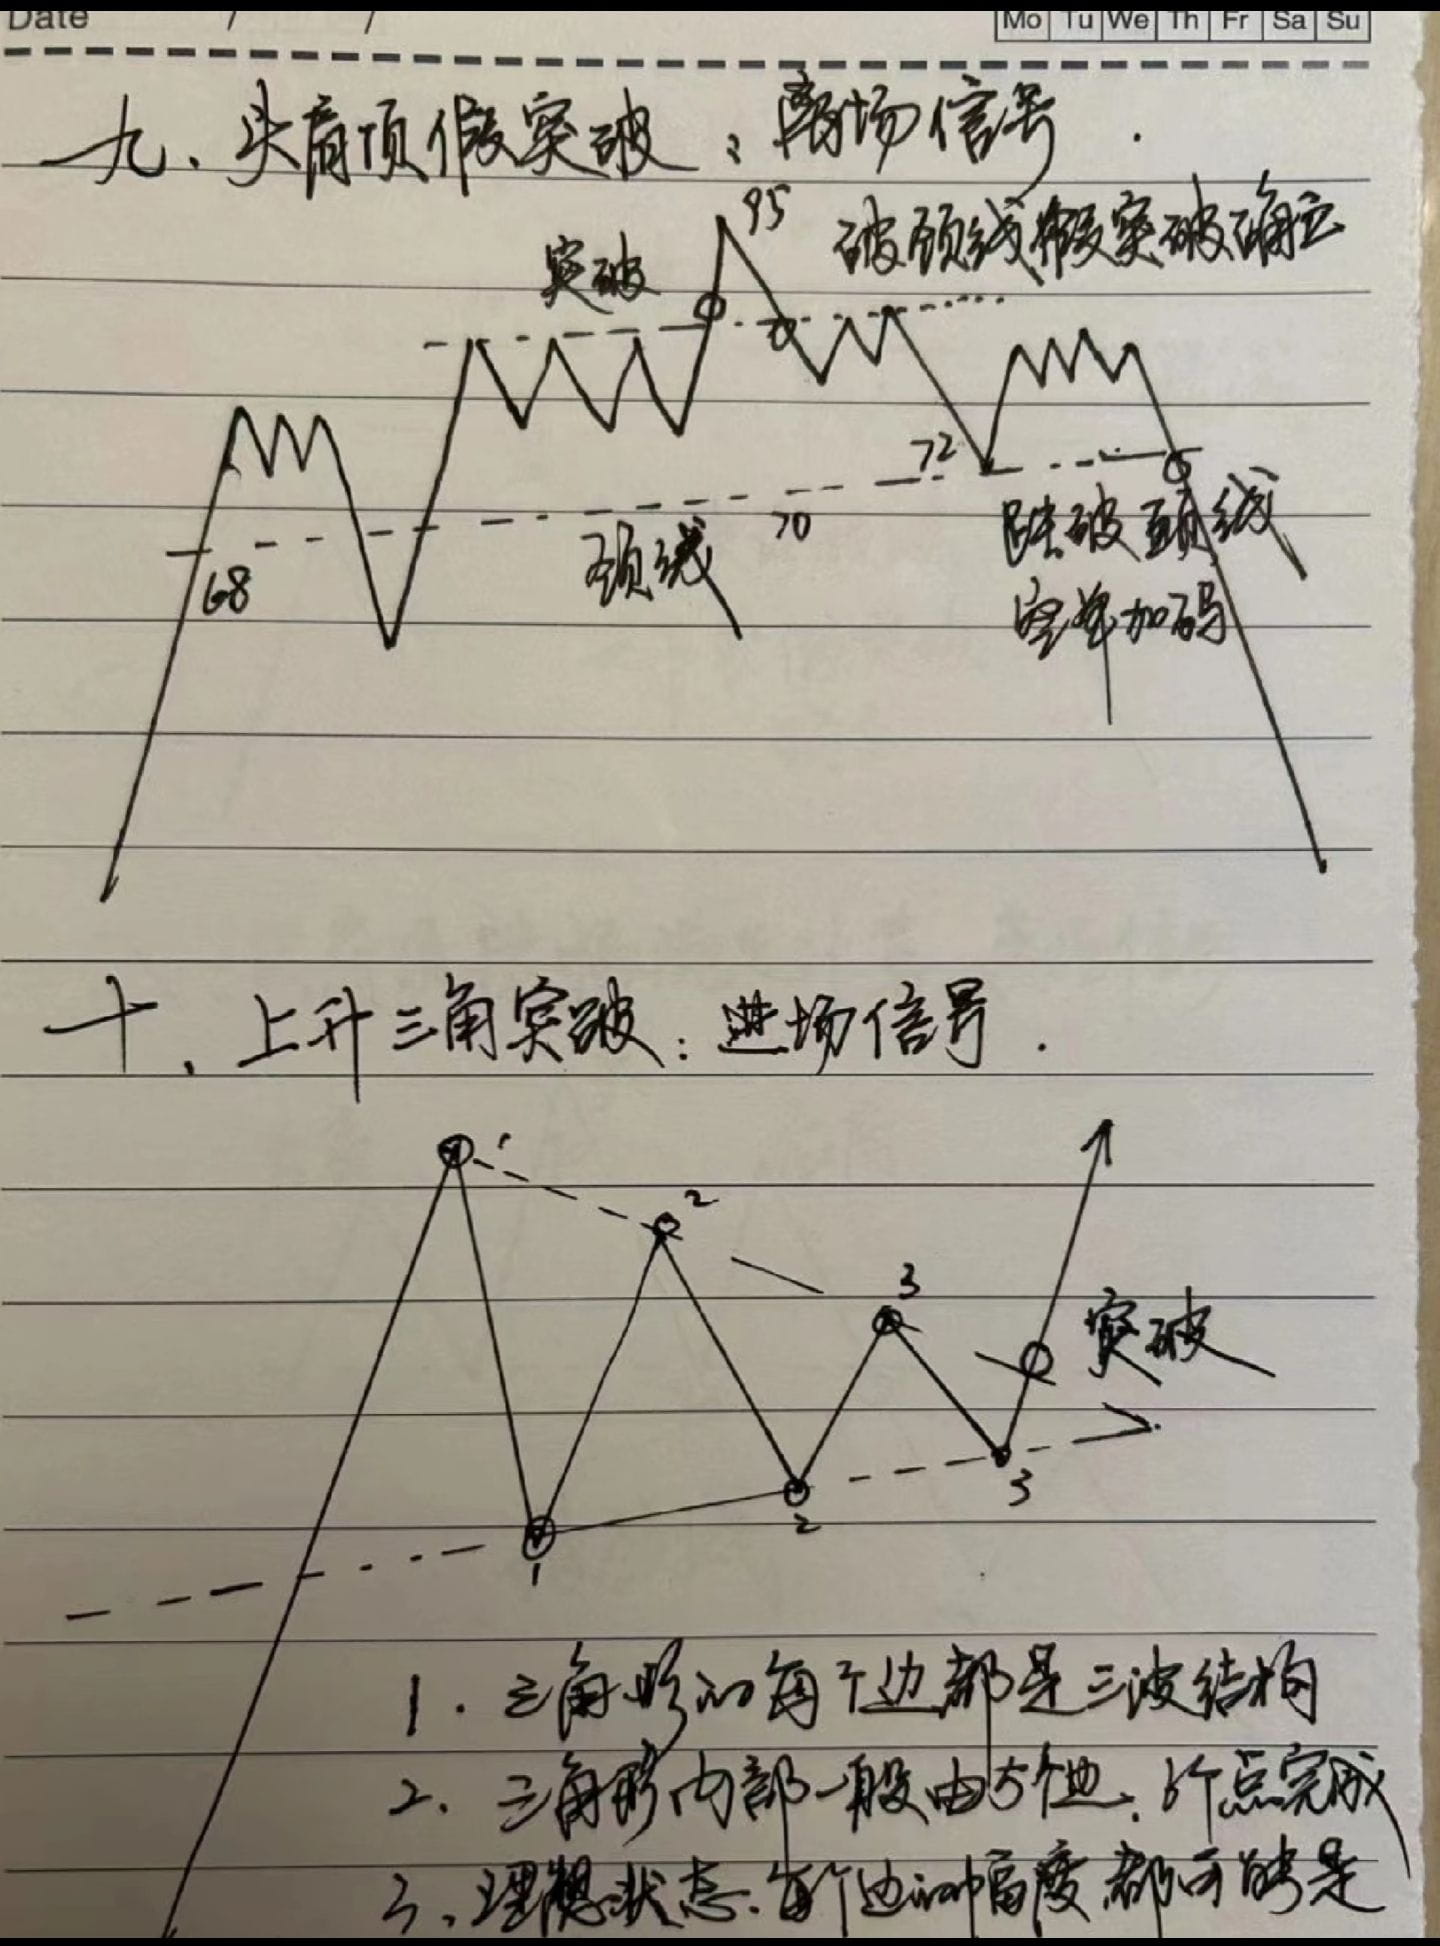 Date / /
Mo Tu We Th Fr Sa Su
九、头肩顶假突破：离场信号.
95
突破
破颈线假突破确立
72
68
颈线
70
跌破颈线
空单加码
十、上升三角突破：进场信号.
1
2
3
突破
3
2
1
1. 三角形的每个边都是三波结构
2. 三角形内部一般由5个边、6个点完成
3、理想状态.每个边的幅度都可能是